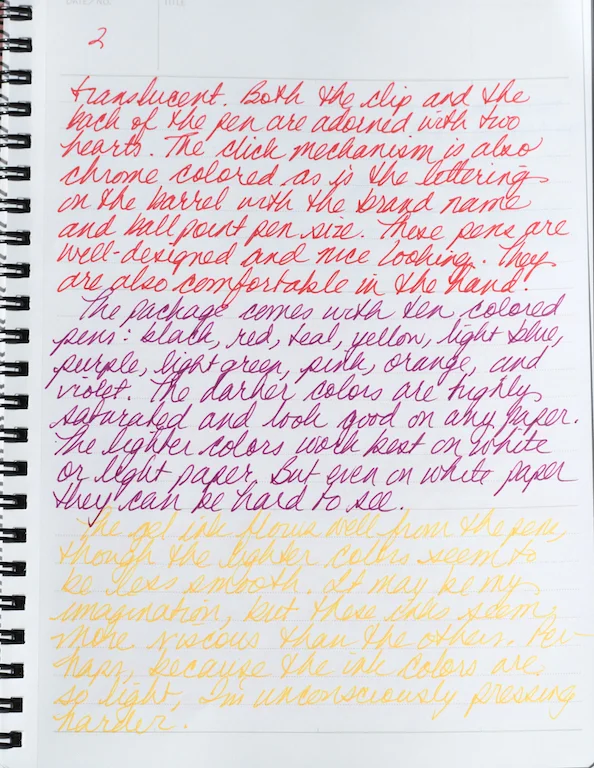 DATE/NO.
TITLE
2
translucent. Both the clip and the
back of the pen are adorned with two
hearts. The click mechanism is also
chrome colored as is the lettering
on the barrel with the brand name
and ball point pen size. These pens are
well-designed and nice looking. They
are also comfortable in the hand.
The package comes with ten colored
pens: black, red, teal, yellow, light blue,
purple, light green, pink, orange, and
violet. The darker colors are highly
saturated and look good on any paper.
The lighter colors work best on white
or light paper, but even on white paper
they can be hard to see.
The gel ink flows well from the pens,
though the lighter colors seem to
be less smooth. It may be my
imagination, but these inks seem
more viscous than the others. Per-
haps, because the ink colors are
so light, I'm unconsciously pressing
harder.